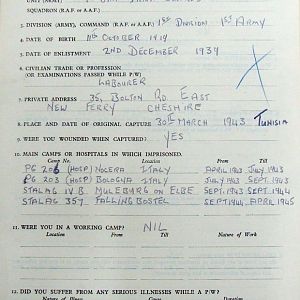 SQUADRON (R.A.F. or A.A.F.)
3. DIVISION (ARMY), COMMAND (R.A.F. or A.A.F.) 1ST DIVISION 1ST ARMY
4. DATE OF BIRTH 11th OCTOBER 1919
5. DATE OF ENLISTMENT 2ND DECEMBER 1939
6. CIVILIAN TRADE OR PROFESSION
OR EXAMINATIONS PASSED WHILE P/W)
LABOURER
7. PRIVATE ADDRESS 35, BOLTON RD. EAST
NEW FERRY CHESHIRE
8. PLACE AND DATE OF ORIGINAL CAPTURE 30TH MARCH 1943 TUNISIA
9. WERE YOU WOUNDED WHEN CAPTURED? YES
10. MAIN CAMPS OR HOSPITALS IN WHICH IMPRISONED.
Camp No. Location From To
PG 206 (HOSP) NOCERA ITALY APRIL 1943 JULY 1943
PG 203 (HOSP) BOLOGNA ITALY JULY 1943 SEPT. 1943
STALAG IV B. MULEBURG ON ELBE SEPT. 1943 SEPT. 1944
STALAG 357 FALLING BOSTEL SEPT. 1944 APRIL 1945
11. WERE YOU IN A WORKING CAMP? NIL
Location From To Nature of Work
12. DID YOU SUFFER FROM ANY SERIOUS ILLNESSES WHILE A P/W?
Nature of Illness Cause